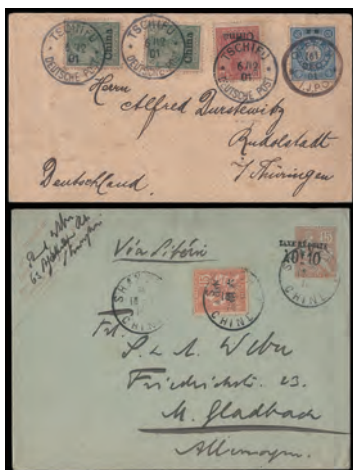 TSCHIFU
6/12
01
DEUTSCHE POST
China
TSCHIFU
6/12
01
DEUTSCHE POST
China
TSCHIFU
6/12
01
DEUTSCHE POST
China
DEC
01
I.J.P.O.
Herrn
Alfred Durstewitz
Rudolstadt
i/Thüringen
Deutschland.
Via Sibérie
TAXE RÉDUITE
A 0f10
15
SHANG
CHINE
CHINE
SHANG
CHINE
Frl.
S. & A. Weber
Friedrichstr. 23.
M. Gladbach
Allemagne.